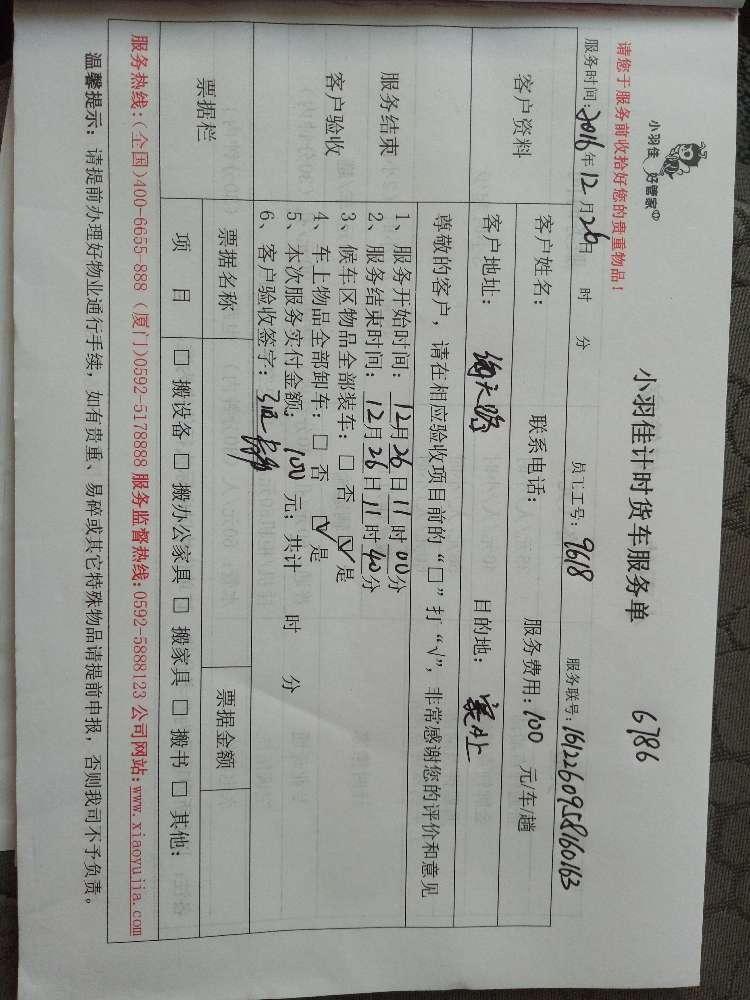 小羽佳 好管家
请您于服务前收拾好您的贵重物品！
小羽佳计时货车服务单 6786
服务时间：2016年12月26日 时 分 员工工号：9618 服务联号：161226095860163
客户资料
客户姓名： 联系电话： 服务费用：100 元/车/趟
客户地址： 目的地：
服务结束
客户验收
尊敬的客户，请在相应验收项目前的“□”打“√”，非常感谢您的评价和意见
1、服务开始时间：12月26日11时00分
2、服务结束时间：12月26日11时40分
3、候车区物品全部装车：□ 否 ☑ 是
4、车上物品全部卸车：□ 否 ☑ 是
5、本次服务实付金额：100 元；共计 时 分
6、客户验收签字：
票据栏
票据名称 票据金额
项 目 □ 搬设备 □ 搬办公家具 □ 搬家具 □ 搬书 □ 其他：
服务热线：(全国)400-6655-888 (厦门)0592-5178888 服务监督热线：0592-5888123 公司网站：www.xiaoyujia.com
温馨提示：请提前办理好物业通行手续，如有贵重、易碎或其它特殊物品请提前申报，否则我司不予负责。